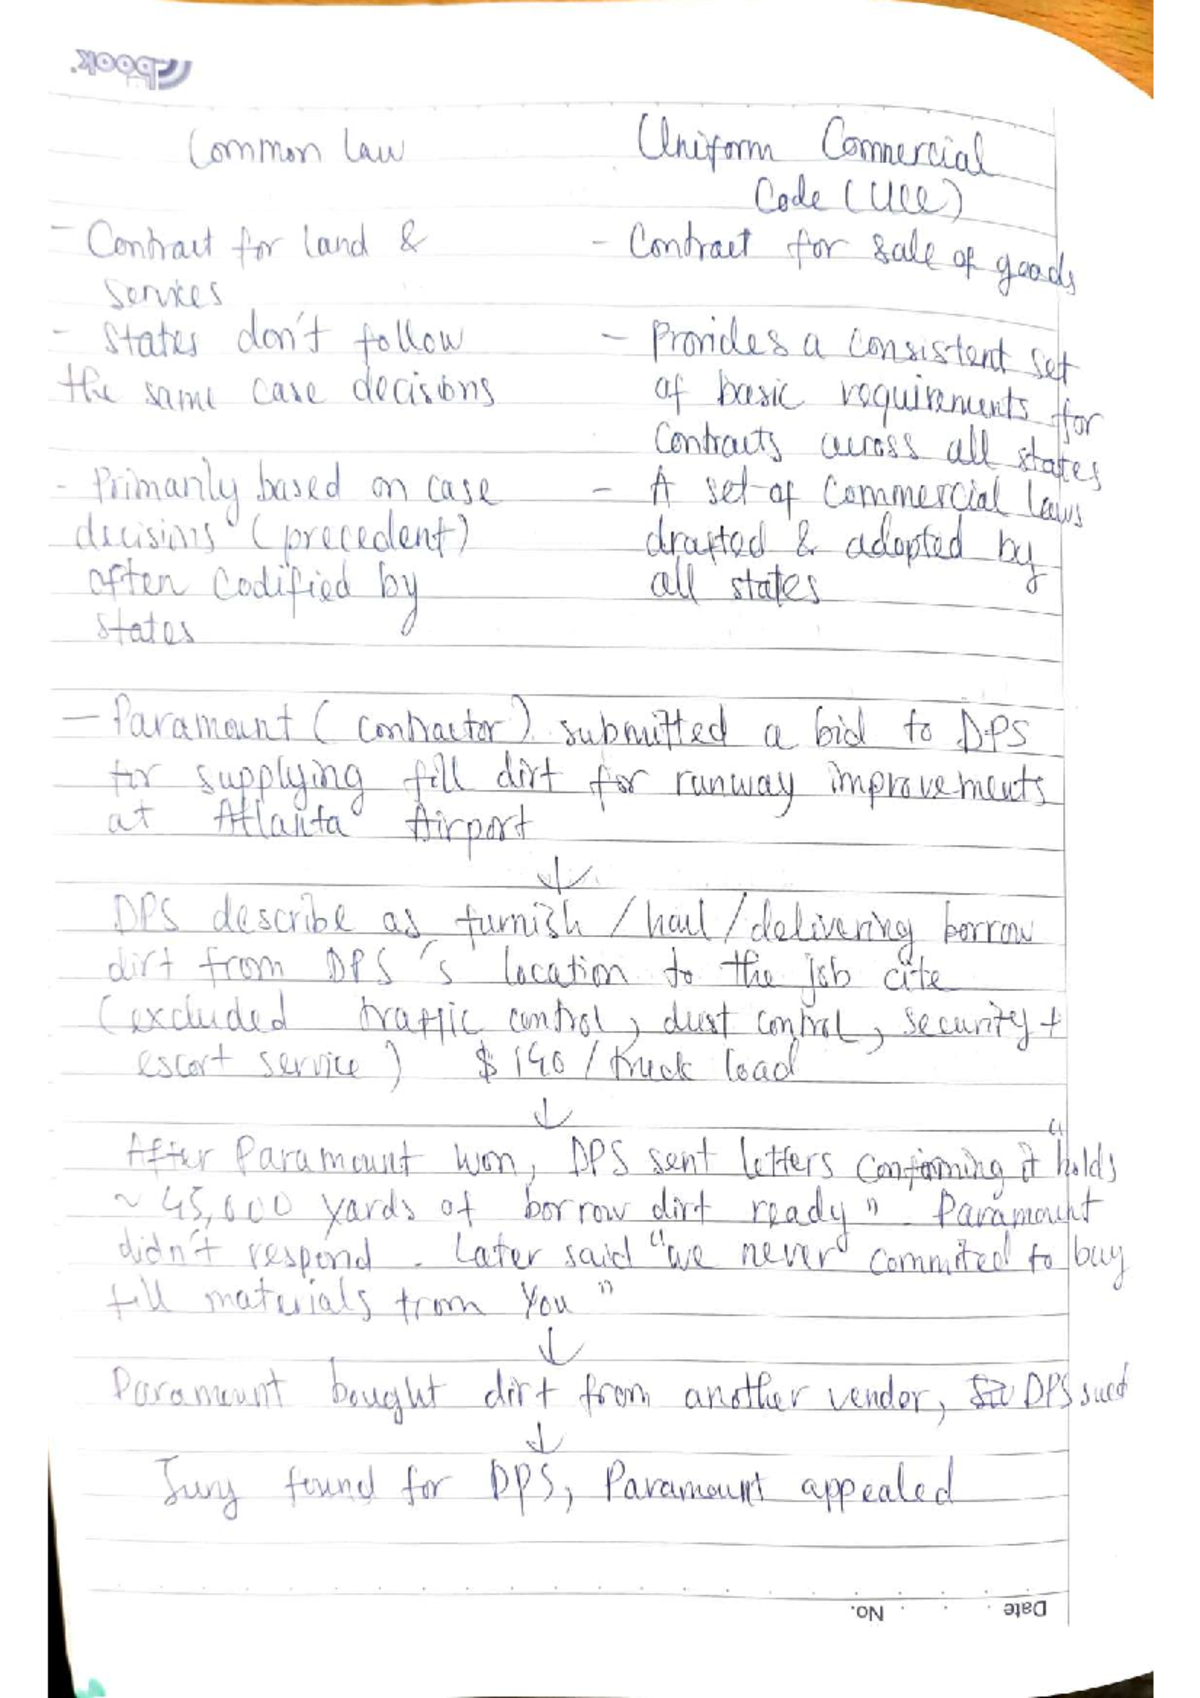 book.
Common law
Uniform Commercial
Code (UCC)
- Contract for land &
services
- States don't follow
the same case decisions
- Primarily based on case
decisions (precedent)
often codified by
states
- Contract for sale of goods
- Provides a consistent set
of basic requirements for
contracts across all states
- A set of commercial laws
drafted & adopted by
all states
- Paramount (contractor) submitted a bid to DPS
for supplying fill dirt for runway improvements
at Atlanta Airport
↓
DPS describe as furnish / haul / delivering borrow
dirt from DPS's location to the job cite
(excluded traffic control, dust control, security +
escort service) $140 / truck load
↓
After Paramount won, DPS sent letters confirming it "holds
~ 45,000 yards of borrow dirt ready". Paramount
didn't respond. Later said "we never commited to buy
fill materials from you"
↓
Paramount bought dirt from another vendor, DPS sued
↓
Jury found for DPS, Paramount appealed
Date
No.